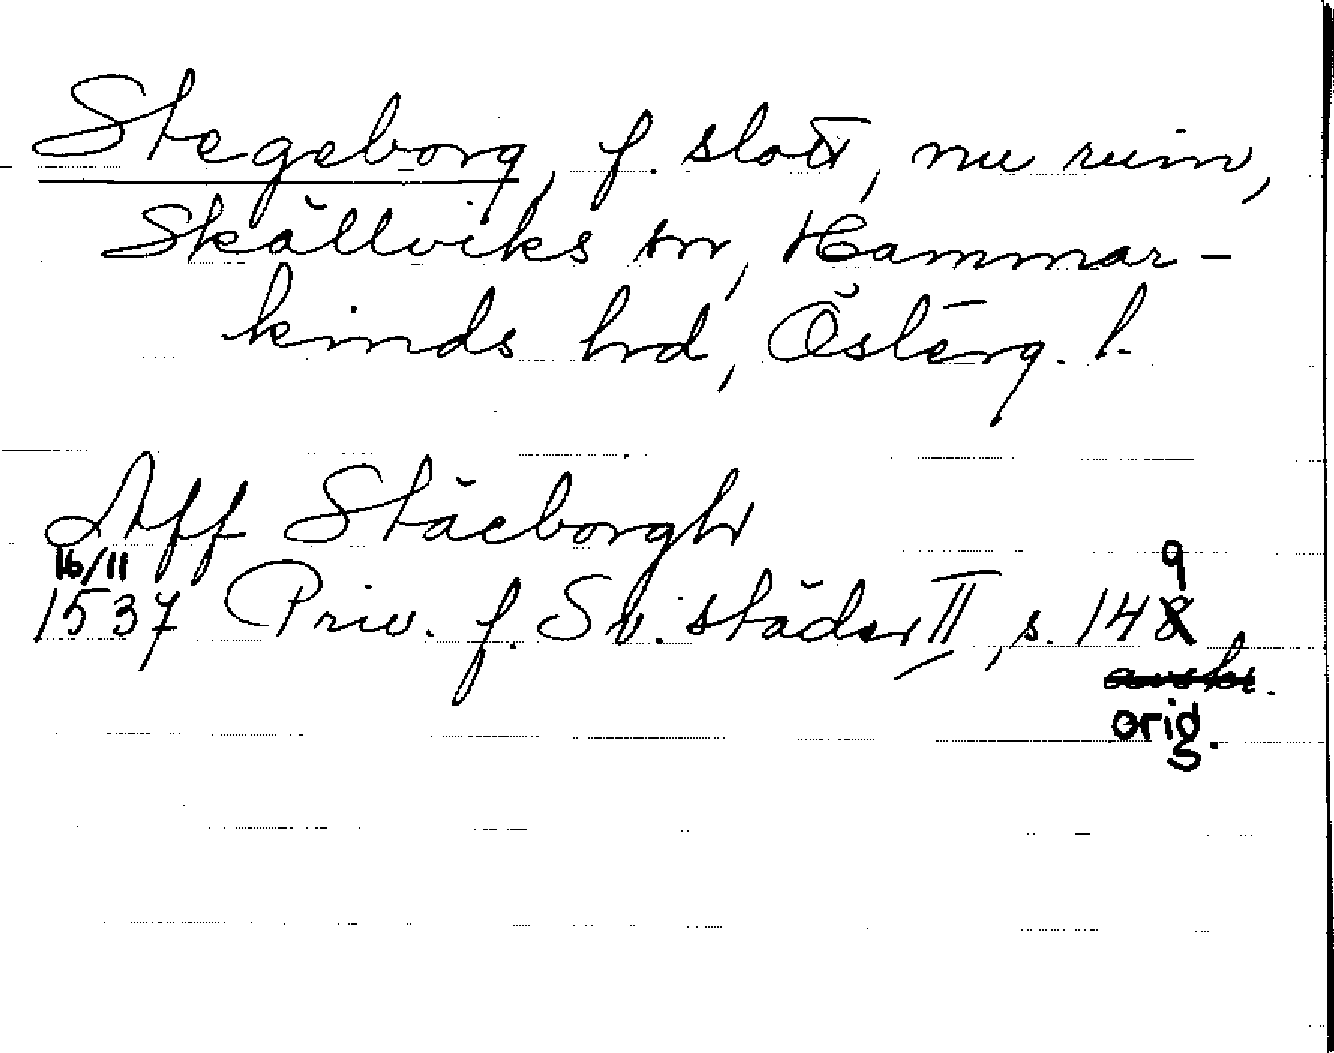 Stegeborg, f. slott, nu ruin,
Skällviks sn, Hammar-
kinds hrd, Österg. l.
Aff Stäcborgh
16/11
1537 Priv. f. Sv. städer II, s. 149
orig.